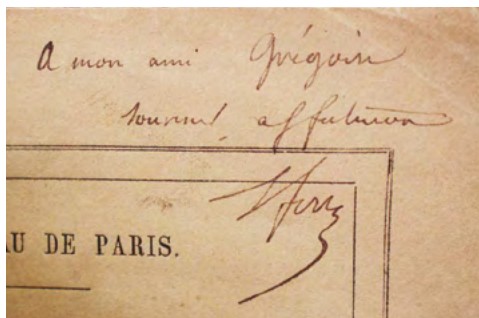 A mon ami Grégoire
souvenir affectueux
AU DE PARIS.